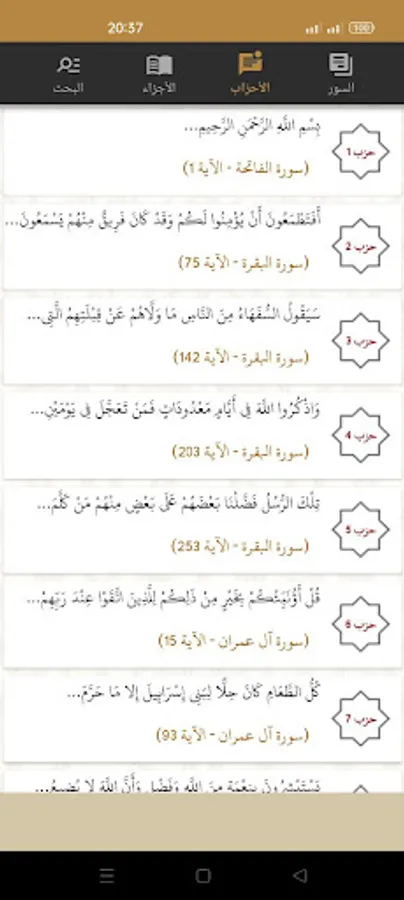 20:37
100
السور
الأحزاب
الأجزاء
البحث
بِسْمِ اللَّهِ الرَّحْمَٰنِ الرَّحِيمِ...
حزب 1
(سورة الفاتحة - الآية 1)
أَفَتَطْمَعُونَ أَنْ يُؤْمِنُوا لَكُمْ وَقَدْ كَانَ فَرِيقٌ مِنْهُمْ يَسْمَعُونَ...
حزب 2
(سورة البقرة - الآية 75)
سَيَقُولُ السُّفَهَاءُ مِنَ النَّاسِ مَا وَلَّاهُمْ عَنْ قِبْلَتِهِمُ الَّتِي...
حزب 3
(سورة البقرة - الآية 142)
وَاذْكُرُوا اللَّهَ فِي أَيَّامٍ مَعْدُودَاتٍ فَمَنْ تَعَجَّلَ فِي يَوْمَيْنِ...
حزب 4
(سورة البقرة - الآية 203)
تِلْكَ الرُّسُلُ فَضَّلْنَا بَعْضَهُمْ عَلَى بَعْضٍ مِنْهُمْ مَنْ كَلَّمَ...
حزب 5
(سورة البقرة - الآية 253)
قُلْ أَؤُنَبِّئُكُمْ بِخَيْرٍ مِنْ ذَلِكُمْ لِلَّذِينَ اتَّقَوْا عِنْدَ رَبِّهِمْ...
حزب 6
(سورة آل عمران - الآية 15)
كُلُّ الطَّعَامِ كَانَ حِلًّا لِبَنِي إِسْرَابِيلَ إِلا مَا حَرَّمَ...
حزب 7
(سورة آل عمران - الآية 93)
يَسْتَبْشِرُونَ بِنِعْمَةٍ مِنَ اللَّهِ وَفَضْلٍ وَأَنَّ اللَّهَ لا يُضِيعُ...